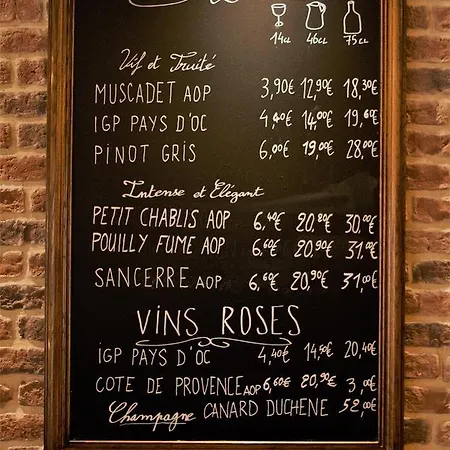 14cl 46cl 75cl
Vif et Fruité
MUSCADET AOP 3,90€ 12,90€ 18,30€
IGP PAYS D'OC 4,40€ 14,00€ 19,60€
PINOT GRIS 6,00€ 19,00€ 28,00€
Intense et Elégant
PETIT CHABLIS AOP 6,40€ 20,80€ 30,00€
POUILLY FUME AOP 6,60€ 20,90€ 31,00€
SANCERRE AOP 6,60€ 20,90€ 31,00€
VINS ROSES
IGP PAYS D'OC 4,40€ 14,50€ 20,40€
COTE DE PROVENCE AOP 6,60€ 20,90€ 3,00€
Champagne CANARD DUCHENE 52,00€